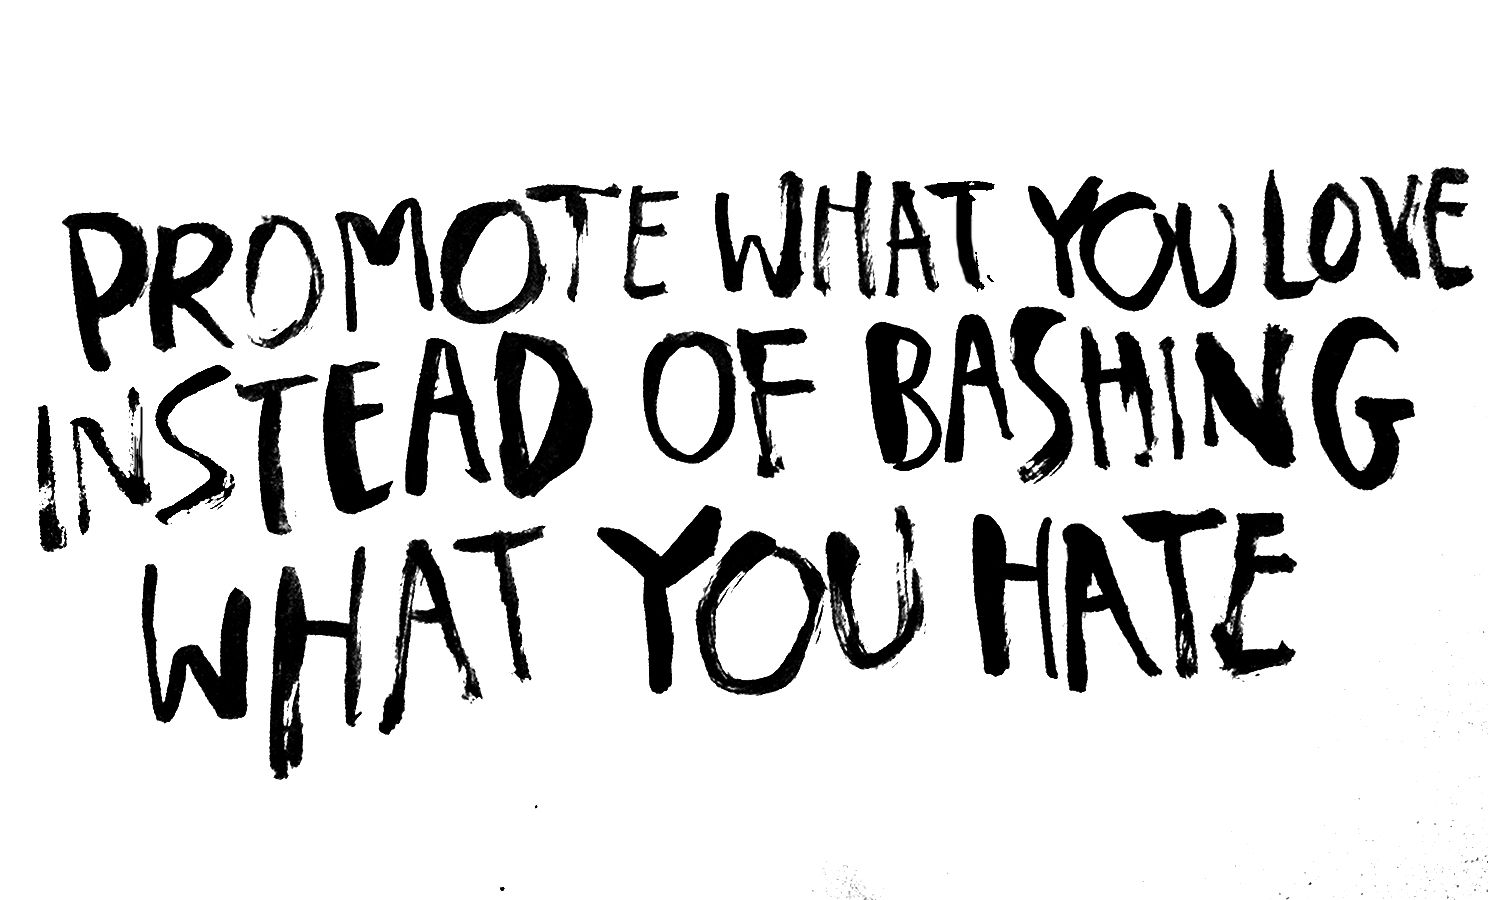 PROMOTE WHAT YOU LOVE
INSTEAD OF BASHING
WHAT YOU HATE